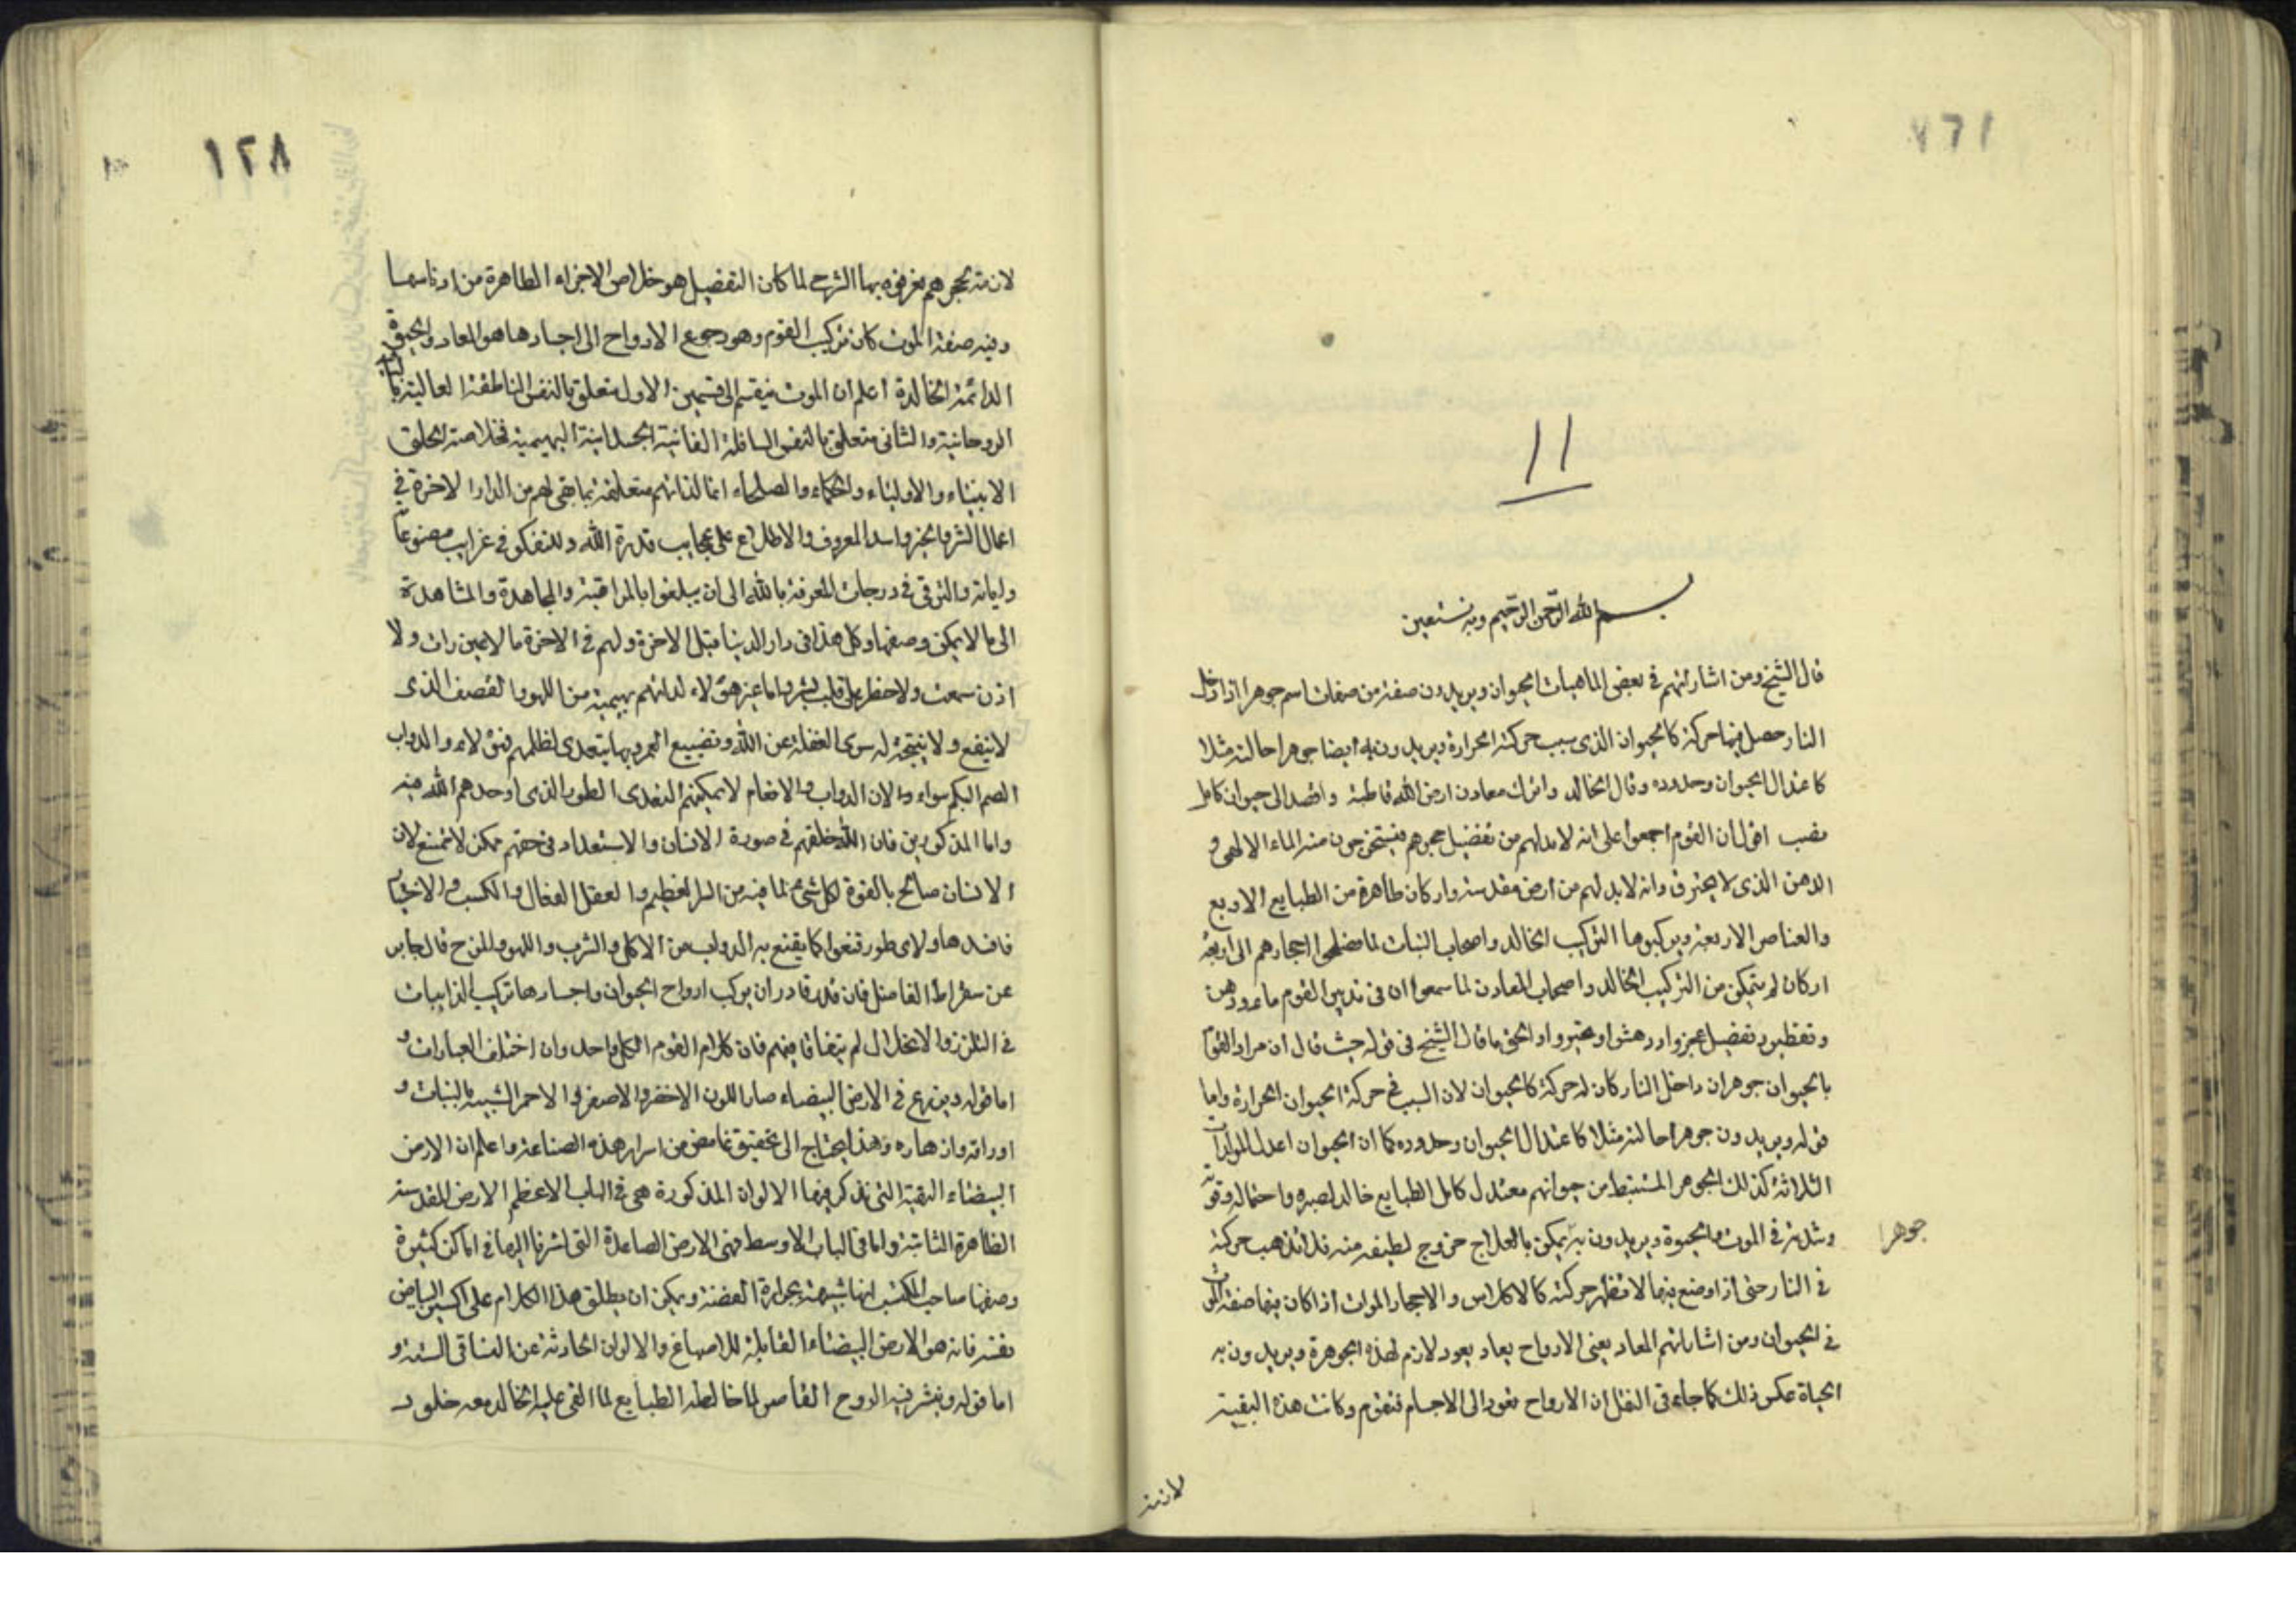 ١١
بسم الله الرحمن الرحيم وبه نستعين
قال الشيخ ومن اشاراتهم في بعض الماهيات الحيوان ويريدون صفة من صفات اسم جوهرا اذا دخل
النار حصل فيها حركة كالحيوان الذى سبب حركته الحرارة ويريدون به ايضا جوهرا حالته مثلا
كاعتدال الحيوان وحدوده وقال الخالد واترك معادن ارض الله قاطبة واقصد الى حيوان كامل
نصب اقول ان القوم اجمعوا على انه لا بد لهم من تفضيل حجرهم فيستخرجون منه الماء الالهى و
الدهن الذى لا يحترق وانه لابد لهم من ارض مقدسة واركان طاهرة من الطبايع الاربع
والعناصر الاربعة ويركبوها التركيب الخالد واصحاب النبات لما فصلوا احجارهم الى اربعة
اركان لم يتمكن من التركيب الخالد واصحاب المعادن لما سمعوا ان فى تدبير القوم ماء ودهن
وتقطير وتفضيل عجزوا واندهشوا وتحيروا والحق ما قال الشيخ فى قوله حيث قال ان مراد القوم
بالحيوان جوهر ان داخل النار كان له حركة كالحيوان لان السبب فى حركة الحيوان الحرارة واما
قوله ويريدون جوهرا حالته مثلا كاعتدال الحيوان وحدوده كما ان الحيوان اعدل المولدات
الثلاثة كذلك الجوهر المستنبط من حيوانهم معتدل كامل الطبايع خالد لصبره واحتماله وقوته
وشدته فى الموت والحيوة ويريدون به يمكن بالعلاج خروج لطيفه منه فلا تذهب حركته
جوهرا
فى النار حتى اذا وضع فيها لا تظهر حركته كالاكلاس والاحجار الموات اذا كان فيها صفة الموت
فى الحيوان ومن اشاراتهم المعاد يعنى الارواح يعاد يعود لازم لهذه الجوهرة ويريدون به
الحياة عكس ذلك كما جاء فى النقل ان الارواح تعود الى الاجسام فتقوم وكانت هذه البقية
لانه
١٢٨
لانه حجرهم يعرفوه بها الشرح لما كان التفضيل هو خلاص الاجزاء الطاهرة من ادناسها
وفيه صفة الموت كان تركيب القوم وهو رجوع الارواح الى اجسادها هو المعاد والحيوة
الدائمة الخالدة اعلم ان الموت ينقسم الى قسمين الاول متعلق بالنفس الناطقة العالية
الروحانية والثانى متعلق بالنفس السافلة الفانية الجسدانية البهيمية فخلاصة الخلق
الانبياء والاولياء والحكماء والصلحاء انما لذاتهم متعلقة بما بقى لهم من الدار الاخرة فى
اعمال الشر والخير واسدا المعروف والاطلاع على عجايب قدرة الله والتفكر فى غرايب مصنوعاته
واياته والترقى فى درجات المعرفة بالله الى ان يبلغوا بالمراقبة والمجاهدة والمشاهدة
الى ما لا يمكن وصفها وكل هذا فى دار الدنيا قبل الاخرة ولهم فى الاخرة ما لا عين رات ولا
اذن سمعت ولا خطر على قلب بشر واما غير هؤلاء لذاتهم بهيمية من اللهو والقصف الذى
لا ينفع ولا ينتجة له سوى الغفلة عن الله وتضييع العمر وبها يتعدى لظلمهم فهؤلاء والدواب
الصم البكم سواء والا ان الدواب والانعام لا يمكنهم التعدى الطور الذى اوجدهم الله فيه
واما المذكورين فان الله خلقهم فى صورة الانسان والاستعداد فى حقهم ممكن لا ممتنع لان
الانسان صالح بالقوة لكل شىء لما فيه من السر العظيم والعقل الفعال والكسب والاختيار
فافسدها ولاى طور قنعوا كما يقنع به الدواب من الاكل والشرب واللهو والمزح قال جابر
عن سقراط الفاضل فان قدر قادر ان يركب ارواح الحيوان واجسادها تركيب الذايبات
فى التلزز والانحلال لم يتفاقا فيهم فان كلام القوم الكل واحد وان اختلف العبارات و
اما قوله ويزرع فى الارض البيضاء صار اللون الاخضر والاصفر والاحمر الشبيه بالنبات و
اوراقه وازهاره وهذا يحتاج الى تحقيق غامض من اسرار هذه الصناعة واعلم ان الارض
البيضاء النقية التى نذكر فيها الالوان المذكورة هى فى الباب الاعظم الارض المقدسة
الطاهرة الثابتة واما فى الباب الاوسط فهى الارض الصاعدة التى اشرنا اليها فى اماكن كثيرة
وصفها صاحب المكتسب انها شبيهة بحرارة الفضة ويمكن ان يطلق هذا الكلام على اكسير البياض
نفسه فانه هو الارض البيضاء القابلة للاصباغ والالوان الحادثة عن التساقى الستة و
اما قوله وينشر فيه الروح القاص لما خالطه الطبايع لما القى عليه الخالد معه خلود